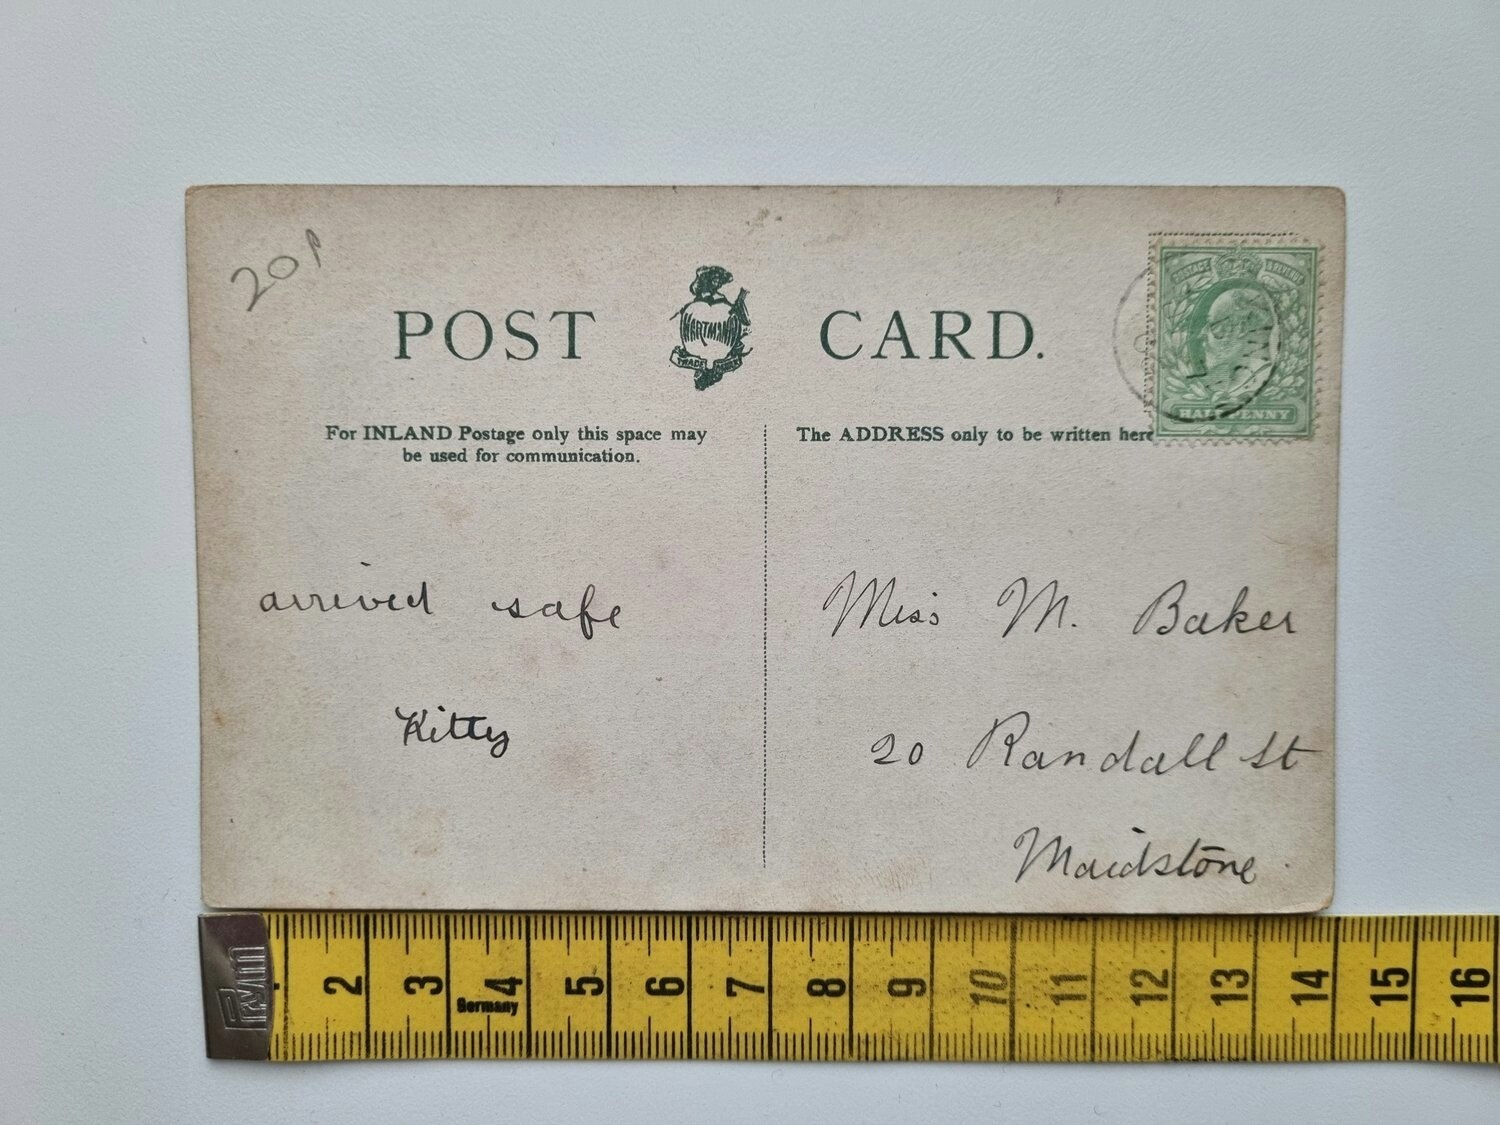 20p
POST CARD.
HARTMANN
TRADE MARK
POSTAGE REVENUE
HALFPENNY
For INLAND Postage only this space may
be used for communication.
The ADDRESS only to be written here
arrived safe
Kitty
Miss M. Baker
20 Randall St
Maidstone
2 3 4 5 6 7 8 9 10 11 12 13 14 15 16
Germany